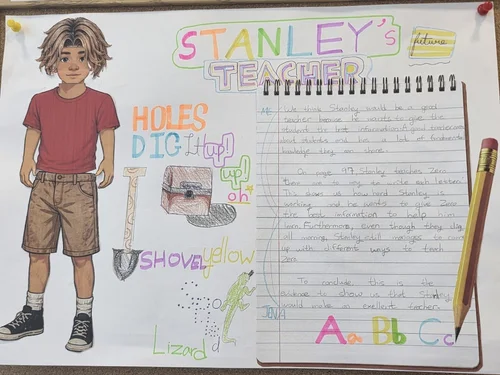 STANLEY's
TEACHER
future
HOLES
DIG it up!
up!
oh
SHOVEL
yellow
Lizard
We think Stanley would be a good
teacher because he wants to give the
student the best information
about students and has a lot of
knowledge
On page 97 Stanley teaches Zero
how to write each lesson
how hard Stanley is
working and he wants to give Zero
the best information to help him
learn. Furthermore, even though they dig
every morning, Stanley still manages to come
up with different ways to teach
Zero.
To conclude this is the
evidence to show us that Stanley
would make an excellent teacher.
Aa Bb Cc